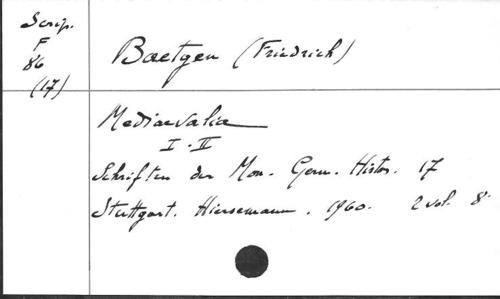 Scrip.
F
86
(17)
Baetgen (Friedrich)
Mediaevalia
I-II
Schriften der Mon. Germ. Histor. 17
Stuttgart. Hiersemann. 1960. 2 vol. 8°